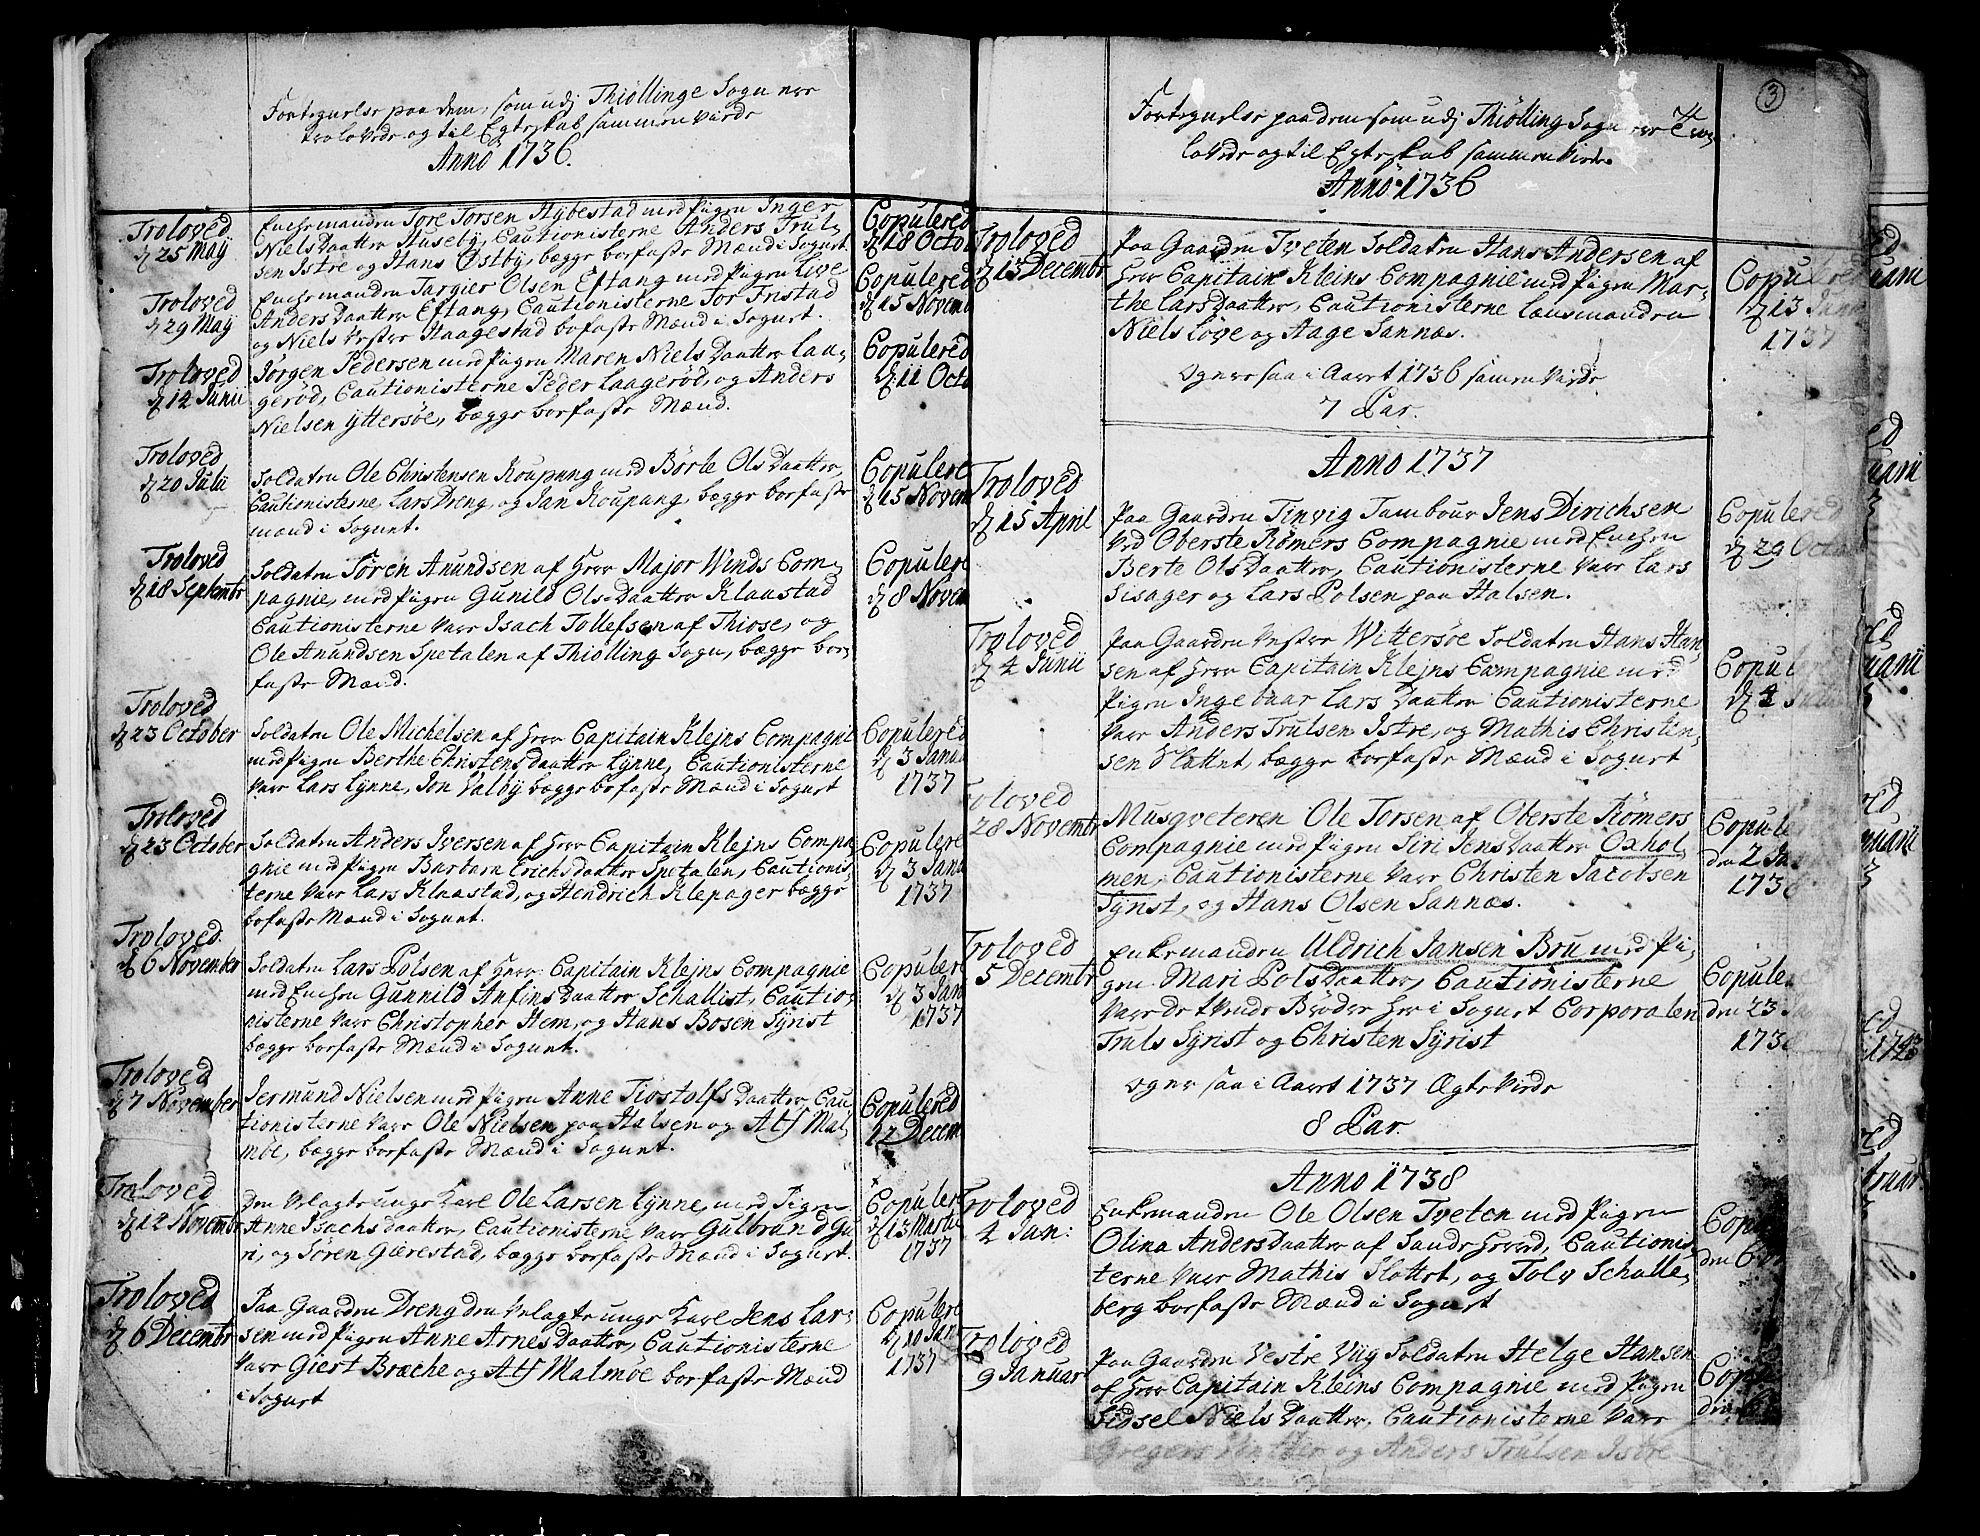 Fortegnelse paa dem, som udj Thiöllinge Sogn ere
trolovede og til Egteskab sammenviede
Anno 1736.
Troloved
d 25 Maÿ
Enchemanden Tore Torsen Hÿbestad med Pigen Inger
Niels Daatter Husebÿ, Cautionisterne Anders Trul-
sen Istre og Hans Østbÿ, begge bofaste Mænd i Sognet
Copulered
d 18 Octo
Troloved
d 29 Maÿ
Enchemanden Targier Olsen Eftang med Pigen Live
Anders Daatter Eftang, Cautionisterne Tor Tristad
og Niels Vestre Haagestad bofaste Mænd i Sognet.
Copulered
d 15 Novem
Troloved
d 12 Junii
Jörgen Pedersen med Pigen Maren Niels Daatter Lau-
geröd, Cautionisterne Peder Laageröd, og Anders
Nielsen Ÿttersöe, begge bofaste Mænd.
Copulered
d 11 Octo
Troloved
d 20 Julii
Soldaten Ole Christensen Koupang med Börte Ols Daatter,
Cautionisterne Lars Dreng, og Jan Koupang, begge bofaste
mænd i Sognet.
Copulere
d 15 Novem
Troloved
d 18 Septembr
Soldaten Sören Anundsen af Herr Major Winds Com-
pagnie, med Pigen Gunild Ols Daatter Klaastad
Cautionisterne vare Isach Tollefsen af Thiose, og
Ole Anundsen Spetalen af Thiölling Sogn, begge bo-
faste Mænd.
Copulere
d 8 Novem
Troloved
d 23 October
Soldaten Ole Michelsen af Herr Capitain Klejns Compagni
med Pigen Berthe Christens daatter Lÿnne, Cautionisterne
vare Lars Lÿnne, Jon Valbÿ begge bofaste Mænd i Sognet
Copulered
d 3 Janu
1737
Troloved
d 23 October
Soldaten Anders Iversen af Herr Capitain Klejns Compa
gnie med Pigen Barbara Erichsdaatter Spetalen, Cautionis
terne vare Lars Klaastad, og Hendrich Klepager begge
bofaste Mænd i Sognet.
Copulere
d 3 Janu
1737
Troloved
d 6 November
Soldaten Lars Polsen af Herr Capitain Klejns Compagnie
med Enchen Gunnild Anfinsdaatter Schallist, Cautio-
nisterne vare Christopher Hem, og Hans Bosen Sÿrist
begge bofaste Mænd i Sognet.
Copulere
d 3 Jan
1737
Troloved
d 7 November
Jermund Nielsen med Pigen Anne Tiostolfs daatter, Cau-
tionisterne vare Ole Nielsen paa Halsen og Alf Mal-
möe, begge bofaste Mænd i Sognet.
Copulered
12 Decem
Troloved
d 12 Novembr
Den velagte unge Karl Ole Larsen Lÿnne, med Pigen
Anne Isachs daatter, Cautionisterne vare Gulbrand Gu
ri, og Sören Gierestad, begge bofaste Mænd i Sognet.
Copulere
d 13 Martii
1737
Troloved
d 6 Decembr
Paa Gaarden Dreng den velagte unge Karl Jens Lar-
sen med Pigen Anne Arnes Daatter, Cautionisterne
vare Giert Brache og Alf Malmöe bofaste Mænd
i Sognet
Copulere
d 10 Jan
1737
3
Fortegnelse paa dem som udj Thiölling Sogn ere Tro-
lovede og til Egteskab sammenviede
Anno 1736
Troloved
d 13 Decembr
Paa Gaarden Tveten Soldaten Hans Andersen af
Herr Capitain Kleins Compagnie med Pigen Mar-
the Lars Daatter, Cautionisterne Lensmanden
Niels Löve og Aage Sannæs.
Copulered
d 13 Janu
1737
Og ere saa i Aaret 1736 samenviede
7 Par.
Anno 1737
Troloved
d 15 April
Paa Gaarden Tinvig Tambour Jens Dirichsen
ved Oberste Römers Compagnie med Enchen
Berte Ols Daatter, Cautionisterne vare Lars
Sisager og Lars Polsen paa Halsen.
Copulered
d 29 Octo
Troloved
d 4 Junii
Paa Gaarden Vestre Wittersöe Soldaten Hans Han-
sen af Herr Capitain Klejns Campagnie med
Pigen Ingebaar Lars Daatter Cautionisterne
vare Anders Trulsen Istre, og Mathis Christen-
sen Slattet, begge bofaste Mænd i Sognet
Copul
Troloved
28 Novembr
Musqveteren Ole Torsen af Oberste Römers
Compagnie med Pigen Siri Jensdaatter Oxhol-
men, Cautionisterne vare Christen Jacobsen
Sÿrist, og Hans Olsen Sannæs.
Copule
den 2 Ja
1738
Troloved
5 Decembr
Enkemanden Uldrich Jansen Bru med Pi-
gen Mari Pols Daatter, Cautionisterne
vare de tvende Brödre her i Sognet Corporalen
Truls Sÿrist og Christen Sÿrist
Copule
den 23 Ja
1738
Og ere saa i Aaret 1737 Ægteviede
8 Par.
Anno 1738
Troloved
2 Jan:
Enkemanden Ole Olsen Tveten med Pigen
Olina Anders Daatter af Sandeherred, Cautionis-
terne vare Mathis Slottet, og Tolv Schalle-
berg bofaste Mænd i Sognet
Copu
den 6
Troloved
9 Januar
Paa Gaarden Vestre Viig Soldaten Helge Hansen
af Herr Capitain Kleins Compagnie med Pigen
Sidsel Niels Daatter, Cautionisterne vare
Gregers Vintter og Anders Trulsen Istre
Copu